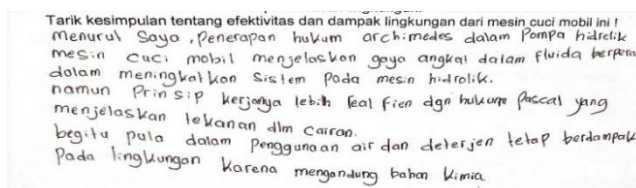 Tarik kesimpulan tentang efektivitas dan dampak lingkungan dari mesin cuci mobil ini !
menurut Saya, Penerapan hukum archimedes dalam Pompa hidrolik
mesin cuci mobil menjelaskan gaya angkat dalam fluida berpera
dalam meningkatkan Sistem Pada mesin hidrolik.
namun Prinsip kerjanya lebih feal fien dgn hukum Pascal yang
menjelaskan tekanan dlm Cairan.
begitu pula dalam penggunaan air dan deterjen tetap berdampak
Pada lingkungan karena mengandung bahan kimia